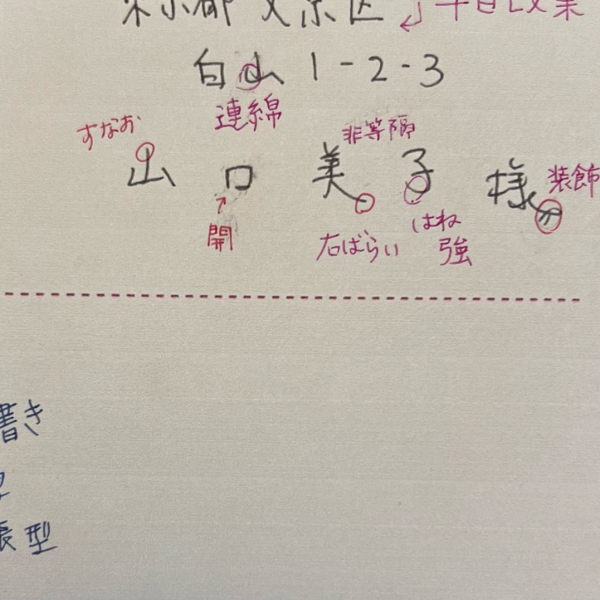 東京都 文京区
白山 1-2-3
連綿
すなお
非等隔
山口 美子 様
装飾
開
右ばらい
はね
強
書き
型